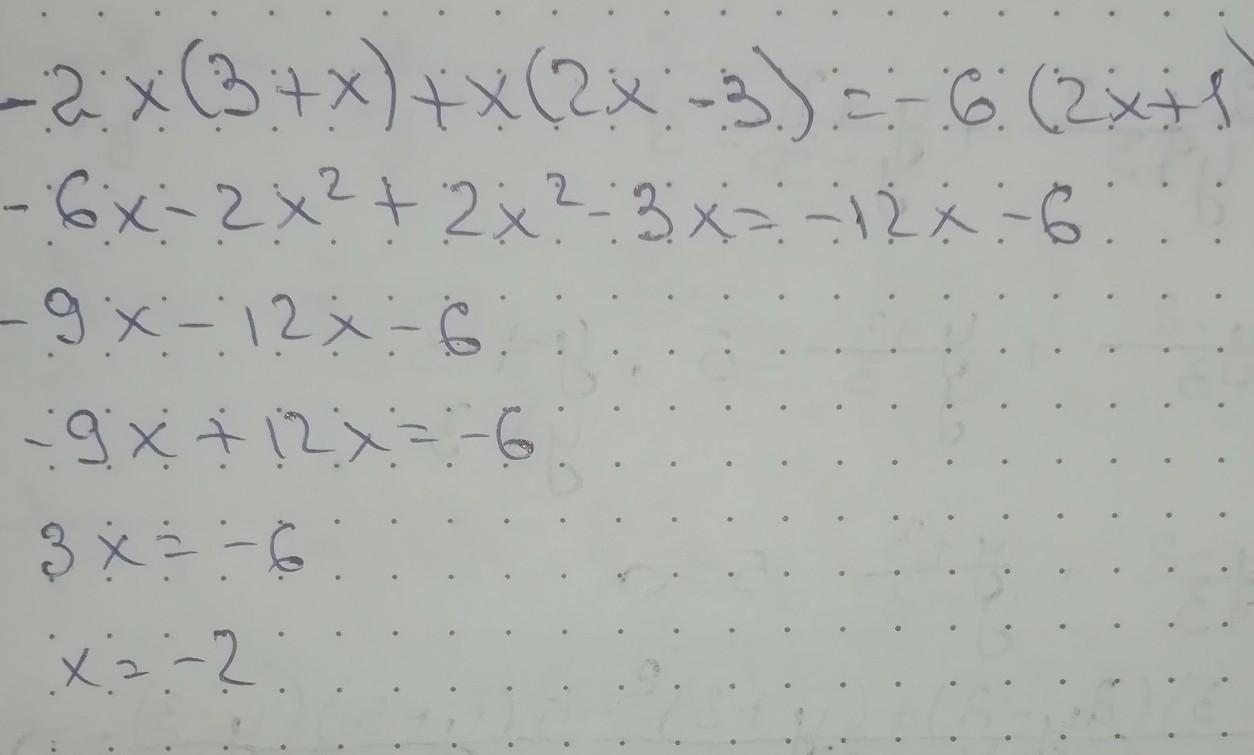 -2x(3+x)+x(2x-3)=-6(2x+1)
-6x-2x²+2x²-3x=-12x-6
-9x-12x-6
-9x+12x=-6
3x=-6
x=-2